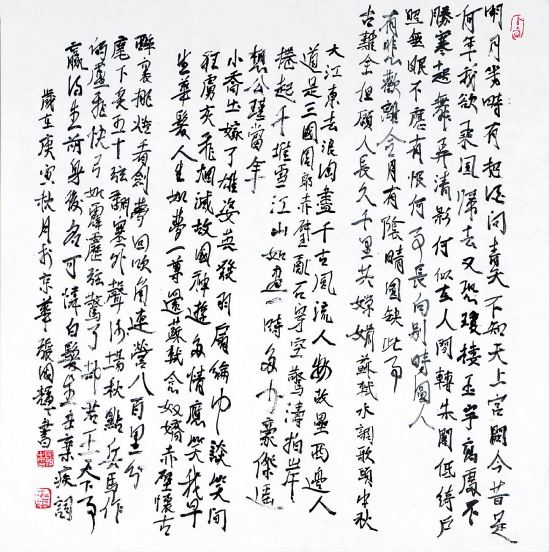 明月幾時有把酒問青天不知天上宮闕今昔是
何年我欲乘風歸去又恐瓊樓玉宇高處不
勝寒起舞弄清影何似在人間轉朱閣低綺戶
照無眠不應有恨何事長向別時圓人
有悲歡離合月有陰晴圓缺此事
古難全但願人長久千里共嬋娟蘇軾水調歌頭中秋
大江東去浪淘盡千古風流人物故壘西邊人
道是三國周郎赤壁亂石穿空驚濤拍岸
捲起千堆雪江山如畫一時多少豪傑遙
想公瑾當年
小喬出嫁了雄姿英發羽扇綸巾談笑間
狂虜灰飛煙滅故國神遊多情應笑我早
生華髮人生如夢一尊還蘇軾念奴嬌赤壁懷古
醉裏挑燈看劍夢回吹角連營八百里分
麾下炙五十弦翻塞外聲沙場秋點兵馬作
的盧飛快弓如霹靂弦驚了卻君王天下事
贏得生前身後名可憐白髮生辛棄疾詞
歲在庚寅秋月於京華張國輝書